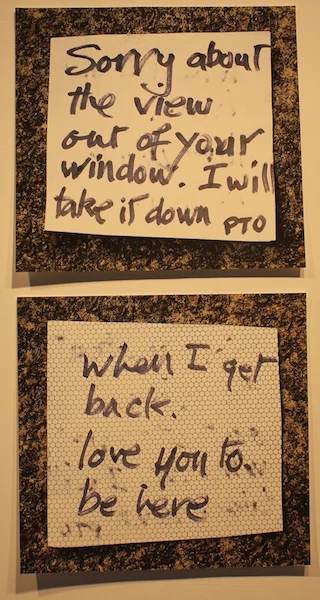 Sorry about
the view
out of your
window. I will
take it down PTO
when I get
back.
love you to.
be here